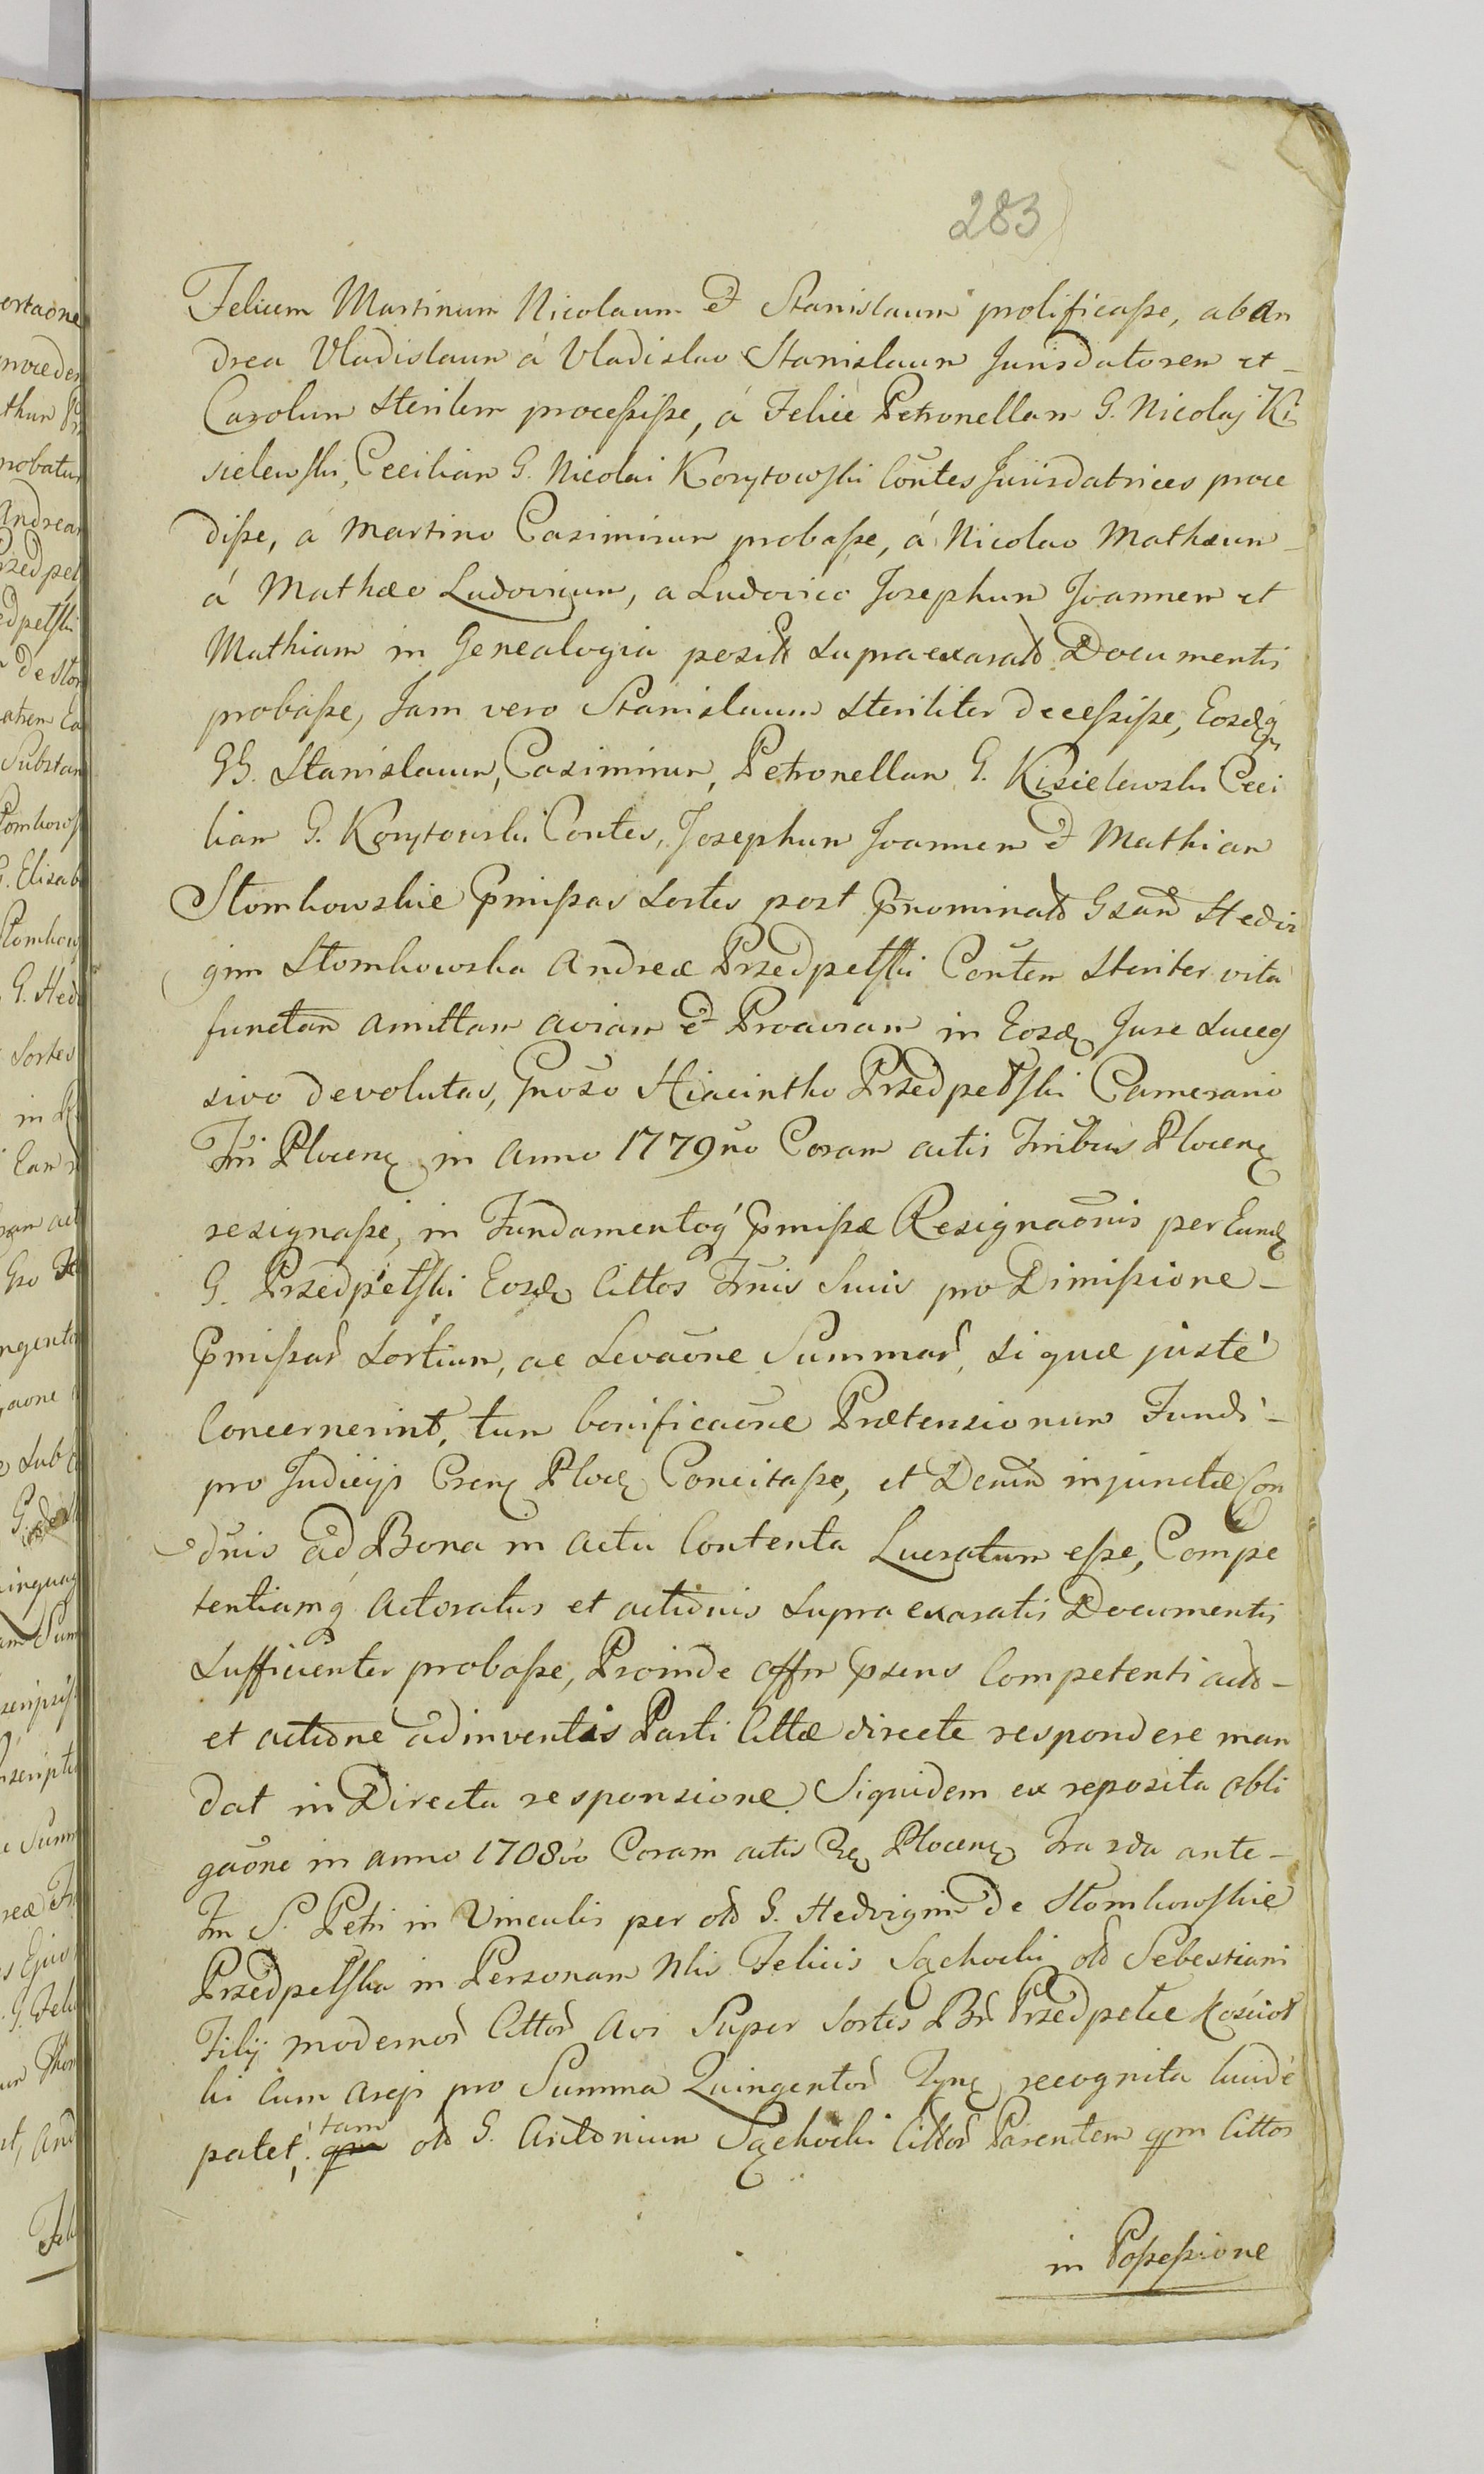 283
Felicem Martinum Nicolaum et Stanislaum prolificasse, ab An
drea Vladislaum á Vladislao Stanislaum Jurisdatorem et
Carolum sterilem processisse, á Felice Petronellam G. Nicolaj Ki
sielewski, Cecilian G. Nicolai Korytowski Contes Jurisdatrices proce
disse, á Martino Casimirum probasse, á Nicolao Mathæum
á Mathæo Ludovicum, a Ludovico Josephum Joannem et
Mathiam in Genealogia posit supraexarat Documentis
probasse, Jam vero Stanislaum steriliter decessisse, Eosdq
GG. Stanislaum, Casimirum, Petronellam G. Kisielewski Ceci
liam G. Korytowski Contes, Josephum Joannem et Mathiam
Słomkowskie pmissas sortes post pnominat Gsam Hedvi
gim Słomkowska Andreæ Przedpełski Contem steriter vita
functam amittam aviam et Proaviam in Eosd Jure Succes
sivo devolutas, Gnoso Hiacintho Przedpełski Camerario
Tri Plocen in Anno 1779no Coram actis Tribus Plocen
resignasse, in Fundamentoq pmissæ Resignaonis per Eund
G. Przedpełski Eosd Cittos Trnis Suis pro Dimissione
pmissar sortium, ac Levaone Summar, si quæ justé
Concernerint, tum bonificaone Prætensionum Fundi
pro Judicijs Cren Ploc Concitasse, et Demum injunctæ Con
dnis ad Bona in Actu Contenta Lucratum esse, Compe
tentiamq Actoratus et actionis supra exaratis Documentis
sufficienter probasse, Proinde Offm psens Competenti acto
et actione adinventis Parti Cittæ directe respondere man
dat in Directa responsione Siquidem ex reposita obli
gaone in anno 1708vo Coram actis Plocen fra 2da ante
fm S. Petri in Vinculis per olo G. Hedvigim de Słomkowskie
Przedpełska in Personam Nlis Felicis Sąchocki olo Sebestiani
Filij modernor Cittor Avi Super Sortes Br Przedpełce Kościoł
ki Cum Areis pro Summa Quingentor Tyn recognita lucidé
patet, tam olo G. Antonium Sąchocki Cittor Parentem qm Cittos
in Possessione